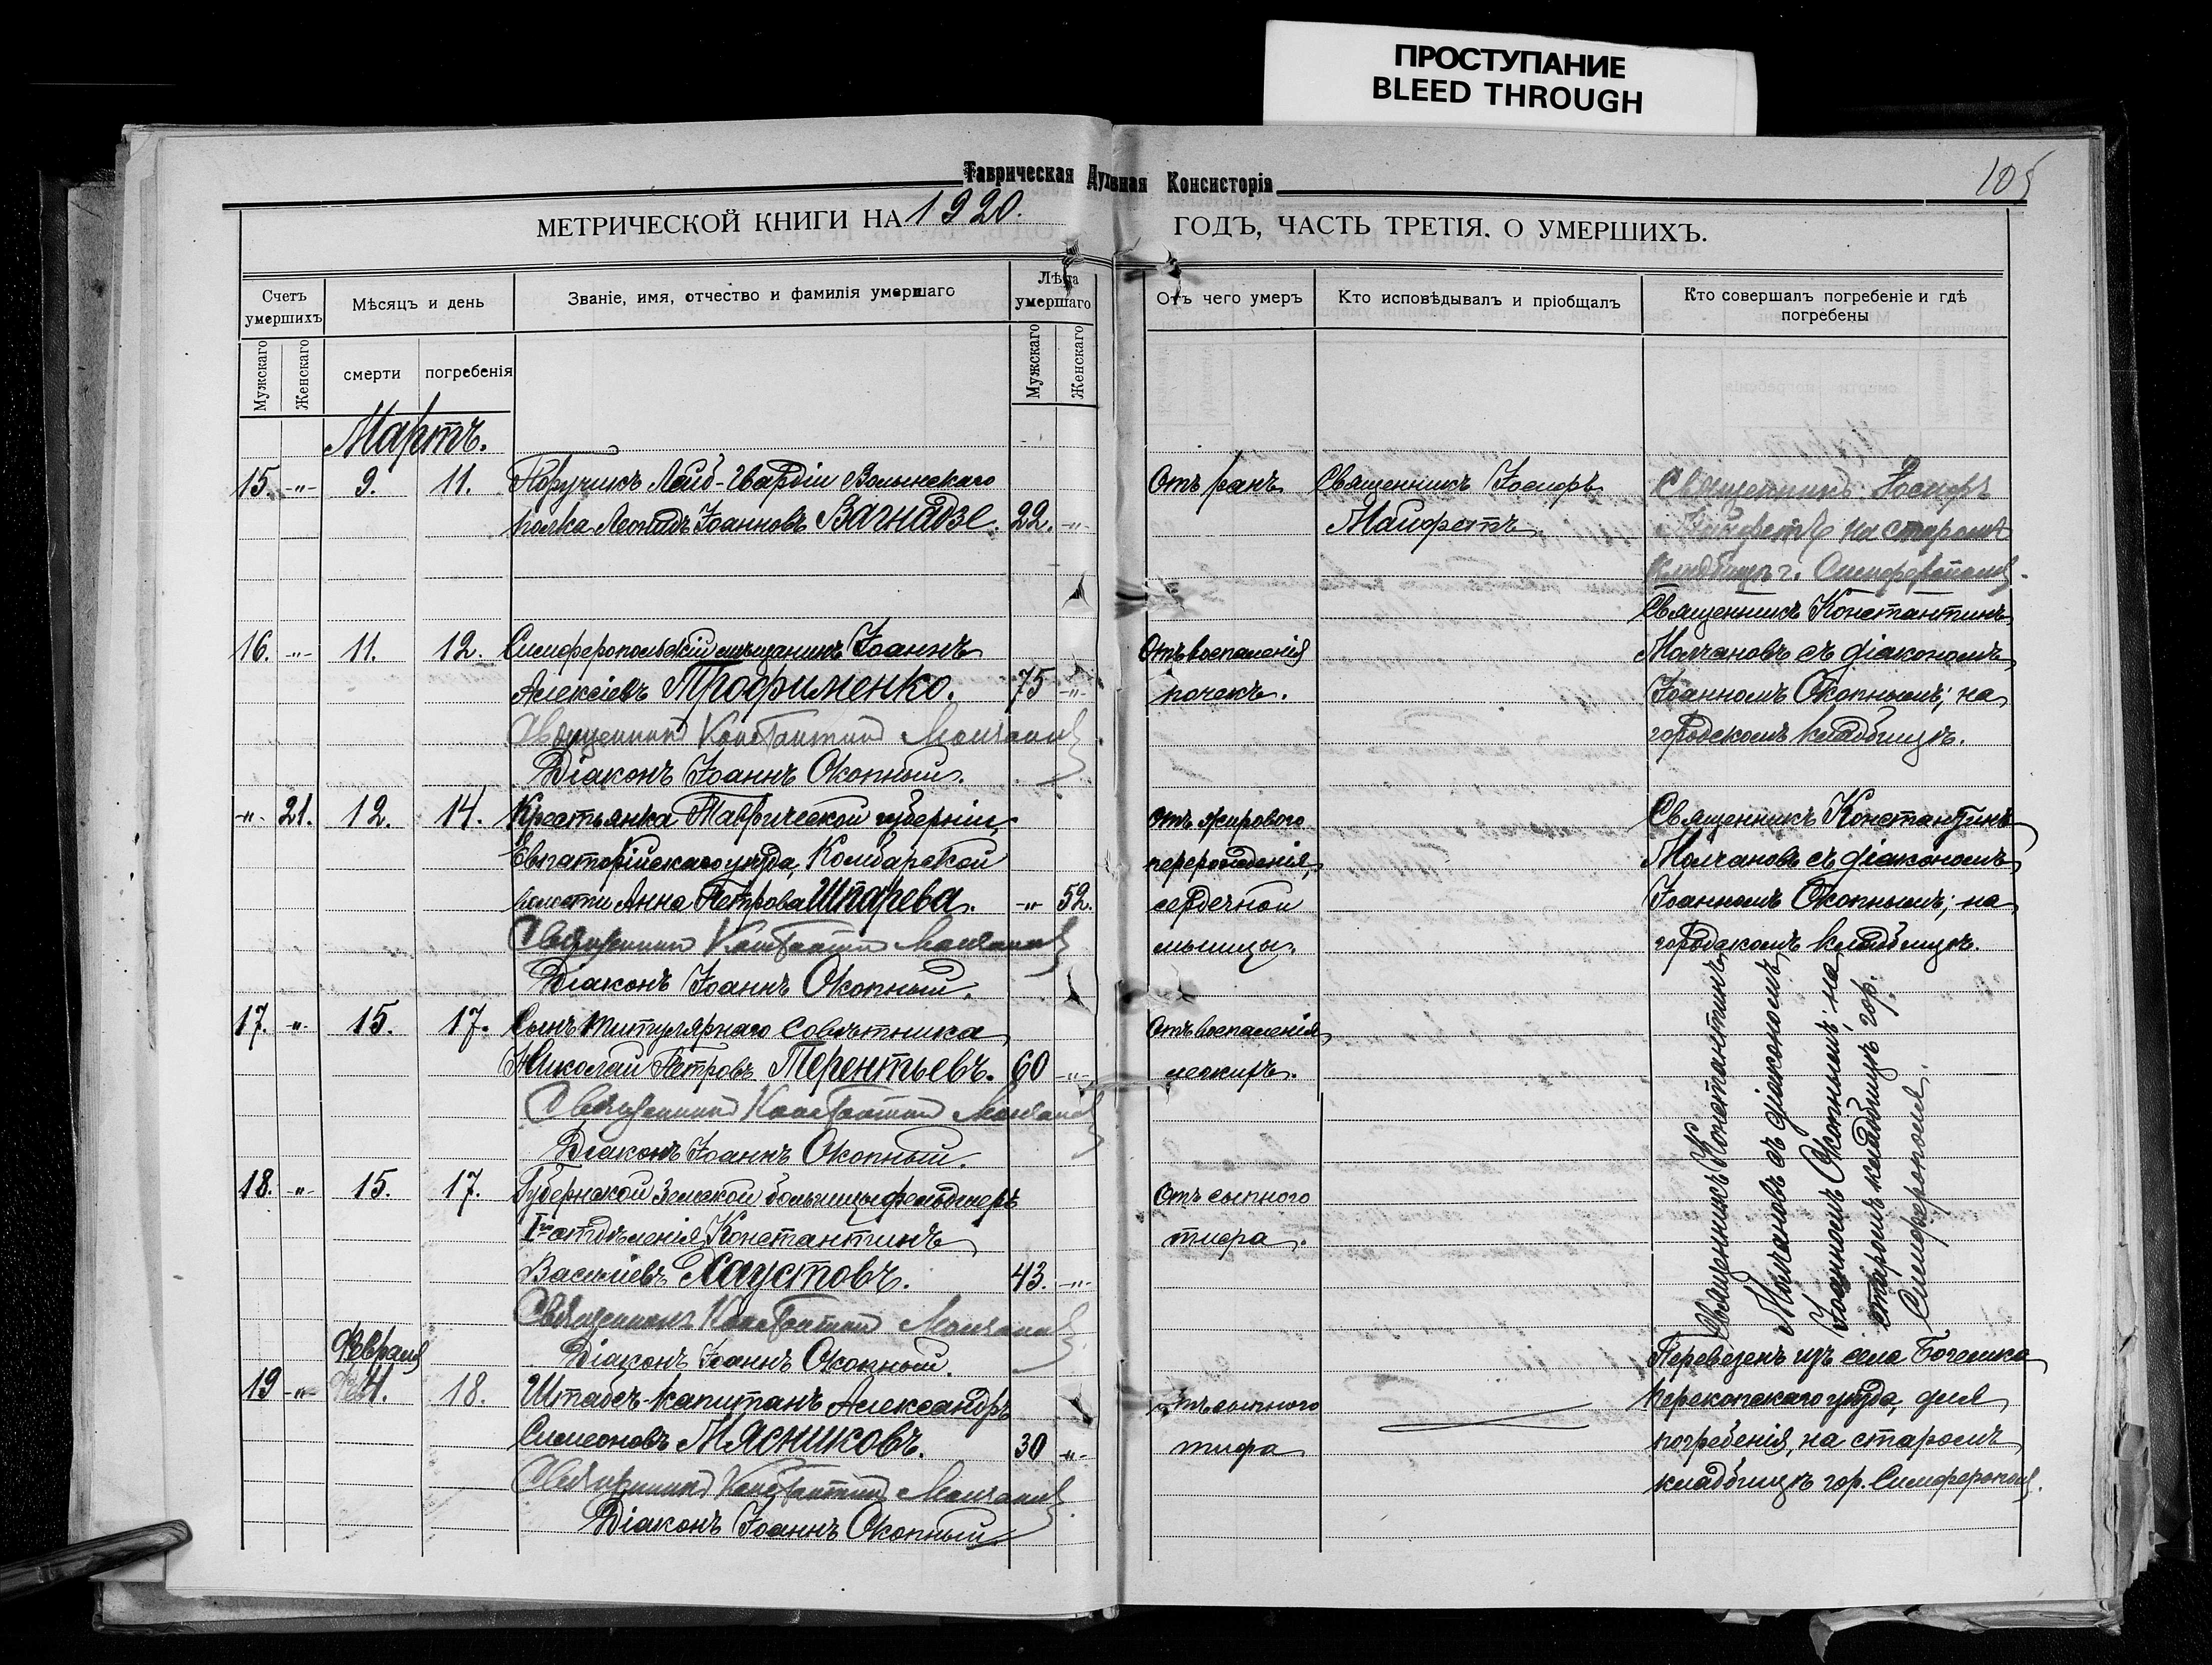 ПРОСТУПАНИЕ
BLEED THROUGH
105
Таврическая Духовная Консисторія
МЕТРИЧЕСКОЙ КНИГИ НА 1920. ГОДЪ, ЧАСТЬ ТРЕТІЯ. О УМЕРШИХЪ.
Счетъ умершихъ
Мужскаго
Женскаго
Мѣсяцъ и день
смерти
погребенія
Званіе, имя, отчество и фамилія умершаго
Лѣта умершаго
Мужскаго
Женскаго
Отъ чего умеръ
Кто исповѣдывалъ и пріобщалъ
Кто совершалъ погребеніе и гдѣ
погребены
Мартъ.
15. -"- 9. 11. Поручикъ Лейб-Гвардіи Волынскаго
полка Леонидъ Іоанновъ Вагнадзе. 22. -"-
Отъ ранъ
Священникъ Іосифъ
Майфетъ
Священникъ Іосифъ
Майфетъ на старомъ
кладбищѣ г. Симферополя.
16. -"- 11. 12. Симферопольскій мѣщанинъ Іоаннъ
Алексіевъ Трофименко. 75 -"-
Священникъ Константинъ Молчановъ
Діаконъ Іоаннъ Окопный.
Отъ воспаленія
почекъ.
Священникъ Константинъ
Молчановъ съ діакономъ
Іоанномъ Окопнымъ; на
городскомъ кладбищѣ.
-"- 21. 12. 14. Крестьянка Таврической губерніи,
Евпаторійскаго уѣзда, Комбарской
волости Анна Петрова Шпарева. -"- 52.
Священникъ Константинъ Молчановъ
Діаконъ Іоаннъ Окопный.
Отъ жирового
перерожденія
сердечной
мышцы.
Священникъ Константинъ
Молчановъ съ діакономъ
Іоанномъ Окопнымъ; на
городскомъ кладбищѣ.
17. " 15. 17. Сынъ титулярнаго совѣтника
Николай Петровъ Терентьевъ. 60 -"-
Священникъ Константинъ Молчановъ
Діаконъ Іоаннъ Окопный.
Отъ воспаленія
легкихъ.
18. -"- 15. 17. Губернской Земской больницы фельдшеръ
Iго отдѣленія Константинъ
Васильевъ Хаустовъ. 43. -"-
Священникъ Константинъ Молчановъ
Діаконъ Іоаннъ Окопный.
Отъ сыпного
тифа.
Священникъ Константинъ
Молчановъ съ діакономъ
Іоанномъ Окопнымъ; на
старомъ кладбищѣ гор.
Симферополя.
Февраля
19 -"- 18. Штабсъ-капитанъ Александръ
Симеоновъ Мясниковъ. 30 -"-
Священникъ Константинъ Молчановъ
Діаконъ Іоаннъ Окопный.
Отъ сыпного
тифа
Перевезенъ изъ села
Перекопскаго уѣзда, для
погребенія, на старомъ
кладбищѣ гор. Симферополя.